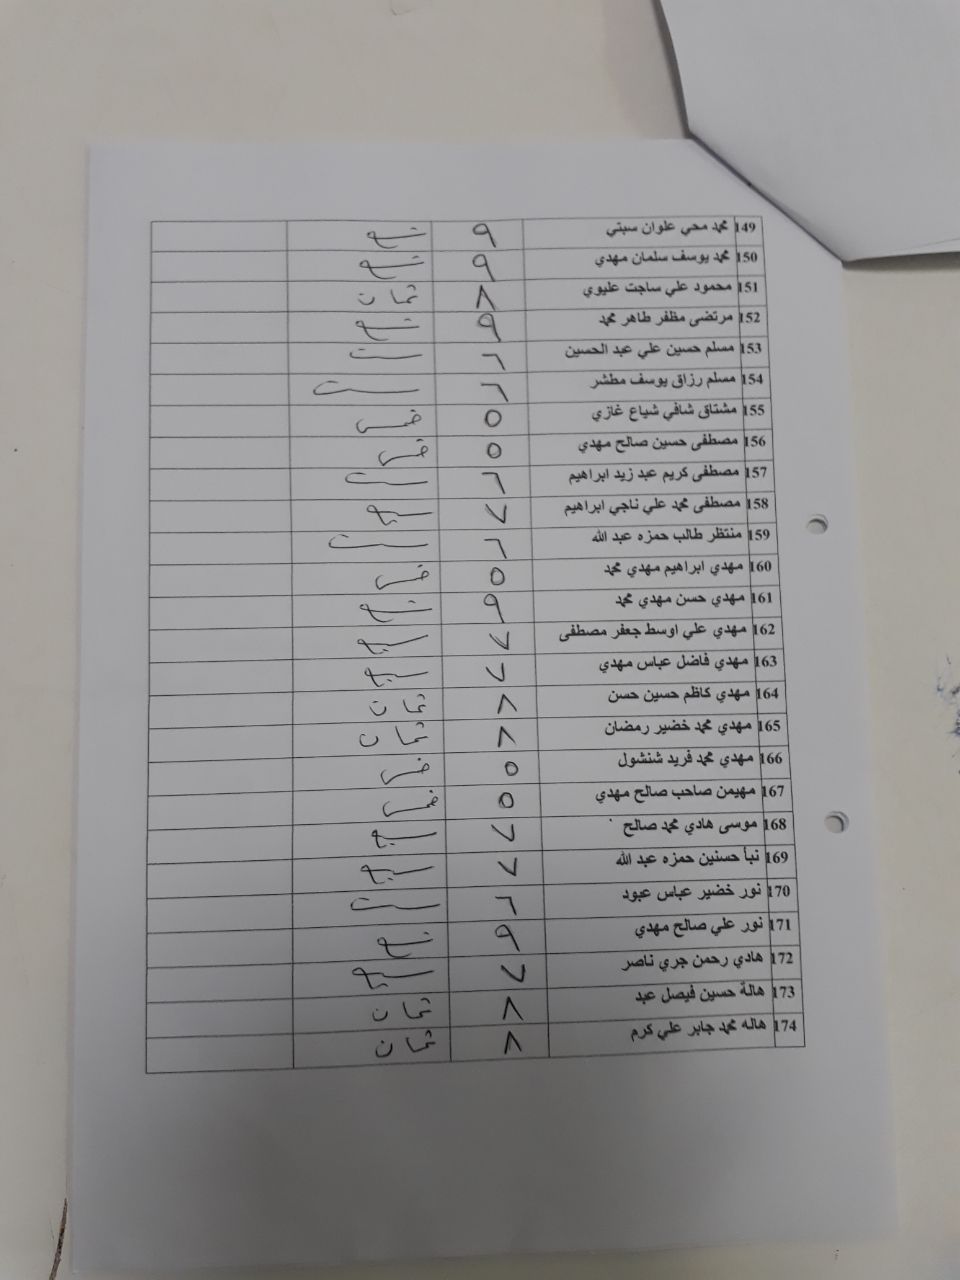 149 محمد محي علوان سبتي ٩ تسع
150 محمد يوسف سلمان مهدي ٩ تسع
151 محمود علي ساجت عليوي ٨ ثمان
152 مرتضى مظفر طاهر محمد ٩ تسع
153 مسلم حسين علي عبد الحسين ٦ ست
154 مسلم رزاق يوسف مطشر ٦ ست
155 مشتاق شافي شياع غازي ٥ خمس
156 مصطفى حسين صالح مهدي ٥ خمس
157 مصطفى كريم عبد زيد ابراهيم ٦ ست
158 مصطفى محمد علي ناجي ابراهيم ٧ سبع
159 منتظر طالب حمزه عبد الله ٦ ست
160 مهدي ابراهيم مهدي محمد ٥ خمس
161 مهدي حسن مهدي محمد ٩ تسع
162 مهدي علي اوسط جعفر مصطفى ٧ سبع
163 مهدي فاضل عباس مهدي ٧ سبع
164 مهدي كاظم حسين حسن ٨ ثمان
165 مهدي محمد خضير رمضان ٨ ثمان
166 مهدي محمد فريد شنشول ٥ خمس
167 مهيمن صاحب صالح مهدي ٥ خمس
168 موسى هادي محمد صالح ٧ سبع
169 نبأ حسنين حمزه عبد الله ٧ سبع
170 نور خضير عباس عبود ٦ ست
171 نور علي صالح مهدي ٩ تسع
172 هادي رحمن جري ناصر ٧ سبع
173 هالة حسين فيصل عبد ٨ ثمان
174 هاله محمد جابر علي كرم ٨ ثمان